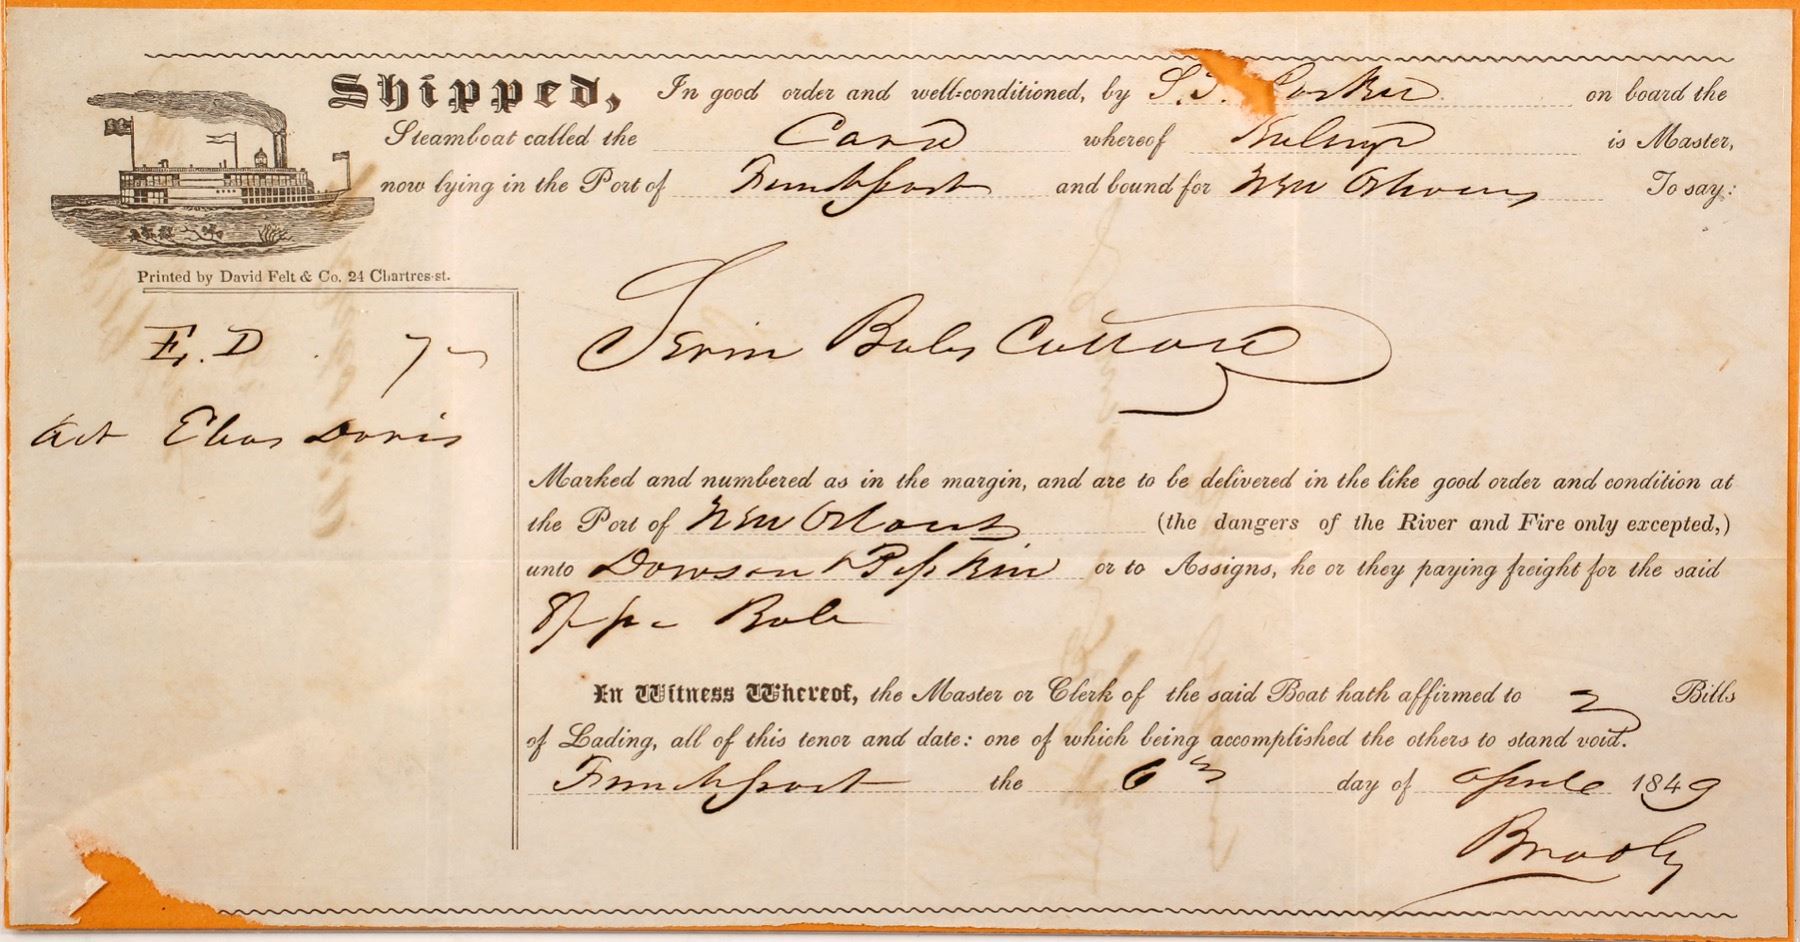 Shipped, In good order and well-conditioned, by S. on board the
Steamboat called the whereof is Master,
now lying in the Port of Frenchport and bound for New Orleans To say:
Printed by David Felt & Co. 24 Chartres-st.
E. D 7
Seven Bales Cotton
Act Elias Davis
Marked and numbered as in the margin, and are to be delivered in the like good order and condition at
the Port of New Orleans (the dangers of the River and Fire only excepted,)
unto Dowson & Pipkin or to Assigns, he or they paying freight for the said
Bale
In Witness Whereof, the Master or Clerk of the said Boat hath affirmed to Bills
of Lading, all of this tenor and date: one of which being accomplished the others to stand void.
Frenchport the 6 day of 1849